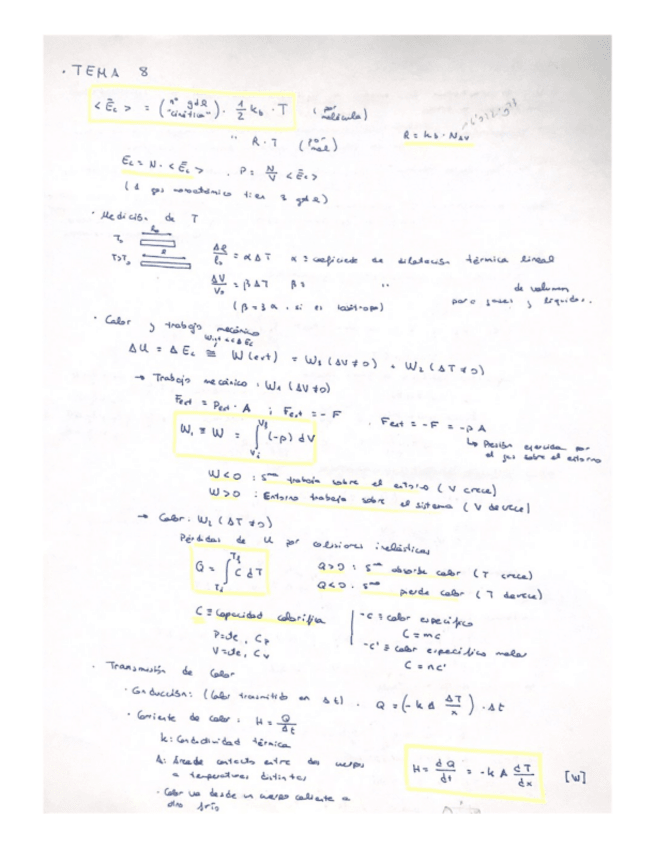 · TEMA 8
<Ēc> = (nº gdl "cinéticos") · 1/2 k_b · T (por molécula)
" R · T (por mol) R = k_b · N_AV
E_c = N · <Ēc> , P = N/V <Ēc>
(1 gas monoatómico tiene 3 gdl)
· Medición de T
T₀ l₀
T>T₀ l
Δl/l₀ = α ΔT α ≡ coeficiente de dilatación térmica lineal
ΔV/V₀ = β ΔT β ≡ " de volumen
(β = 3α, si es isótropo) para gases y líquidos.
· Calor y trabajo mecánico
ΔU = ΔE_c ≡ W(ext) = W₁(ΔV≠0) + W₂(ΔT≠0)
→ Trabajo mecánico: W₁(ΔV≠0)
F_ext = P_ext · A ; F_ext = -F . F_ext = -F = -p A
↳ Presión ejercida por
el gas sobre el entorno
W₁ ≡ W = ∫_{Vi}^{Vf} (-p) dV
W<0 : Sᵐᵃ trabaja sobre el entorno (V crece)
W>0 : Entorno trabaja sobre el sistema (V decrece)
→ Calor. W₂(ΔT≠0)
Pérdidas de U por colisiones inelásticas
Q = ∫_{Ti}^{Tf} C dT Q>0 : Sᵐᵃ absorbe calor (T crece)
Q<0 . Sᵐᵃ pierde calor (T decrece)
C ≡ Capacidad calorífica -c ≡ calor específico
P=cte, C_p C = mc
V=cte, C_v -c' ≡ calor específico molar
C = nc'
· Transmisión de Calor
· Conducción: (Calor transmitido en Δt) . Q = (-k A ΔT/x) · Δt
· Corriente de calor: H = Q/Δt
k: Conductividad térmica
A: Área de contacto entre dos cuerpos
a temperaturas distintas
H = dQ/dt = -k A dT/dx [W]
· Calor va desde un cuerpo caliente a
otro frío